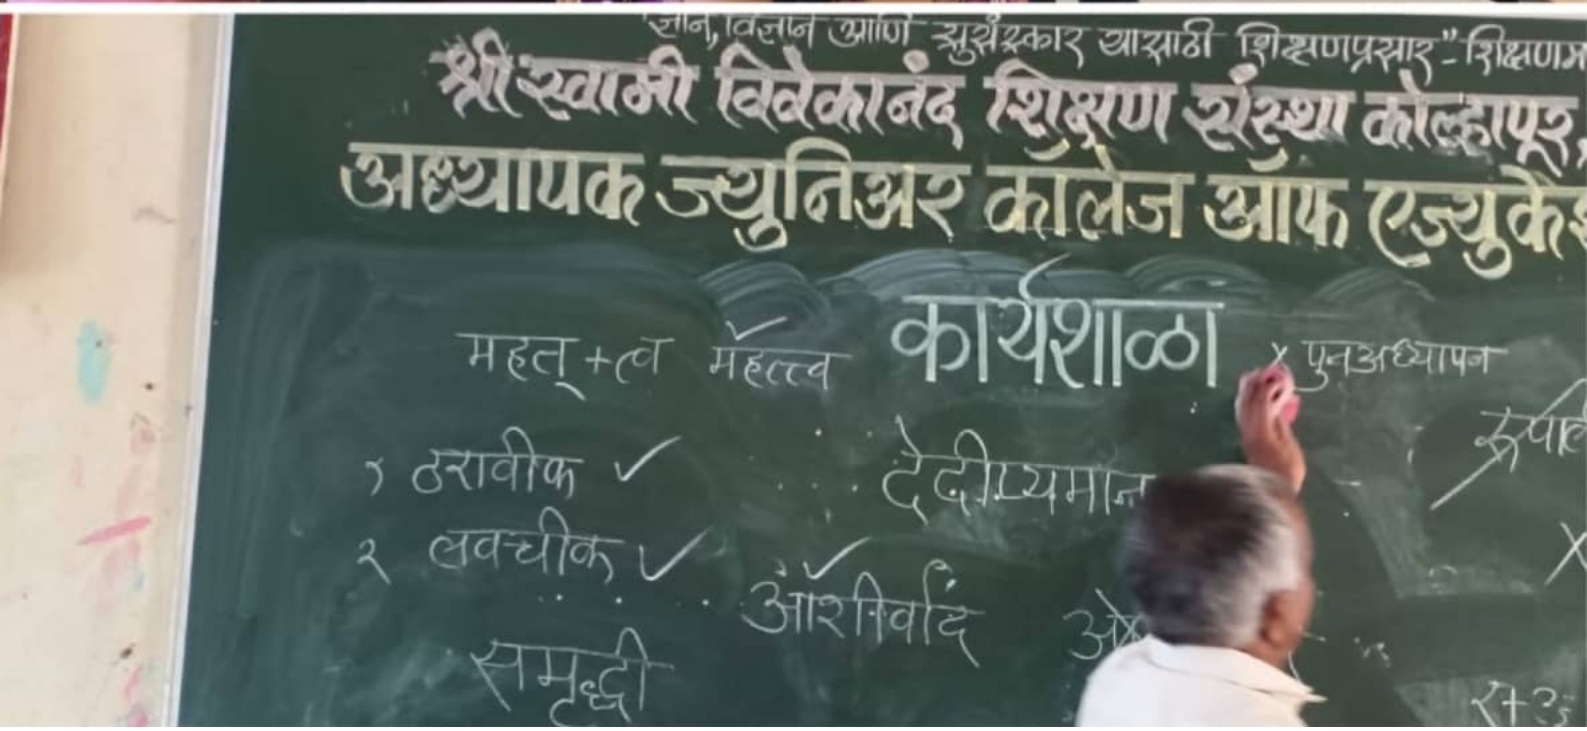 "ज्ञान, विज्ञान आणि सुसंस्कार यासाठी शिक्षणप्रसार" - शिक्षणम
श्री स्वामी विवेकानंद शिक्षण संस्था कोल्हापूर,
अध्यापक ज्युनिअर कॉलेज ऑफ एज्युके
कार्यशाळा
महत् + त्व महत्त्व ✓ × पुनअध्यापन
१ ठरावीक ✓ देदीप्यमान
२ लवचीक ✓ आशीर्वाद ✓
समृद्धी